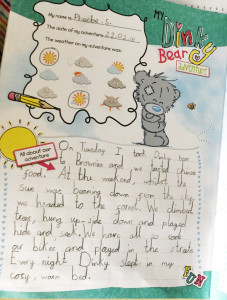 My name is Phoebe. S.
The date of my adventure
The weather on my adventure was:
my
Dinky
Bear
adventure
All about our
adventure
On Tuesday I took Dinky bear
to Brownies and we tasted Chinese
food. At the weekend, whilst the
sun was beaming down from the sky
we headed to the coast. We climbed
trees, hung up-side down and played
hide and seek. We have all so rode
our bikes and played in the
Every night Dinky slept in my
cosy, warm bed.
FUN